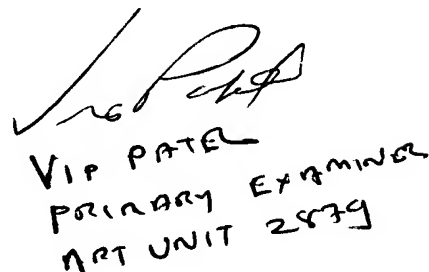 Vip Patel
VIP PATEL
PRIMARY EXAMINER
ART UNIT 2879